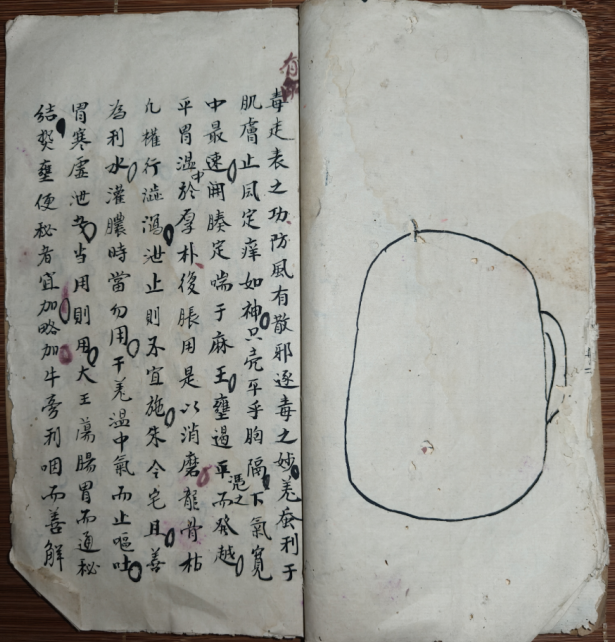 毒走表之功防風有散邪逐毒之妙羌蚕利于
肌膚止風定痒如神只壳平乎胸隔下氣寬
中最速開腠定喘于麻王壅遏平而憑之發越
平胃温中於厚朴後脹用是以消磨龍骨枯
九權行澁瀉泄止則不宜施朱令宅且善
為利水灌膿時當勿用干羌温中氣而止嘔吐
胃寒虚泄当用則用大王蕩腸胃而通秘
結壅便秘者宜加略加牛旁利咽而善解